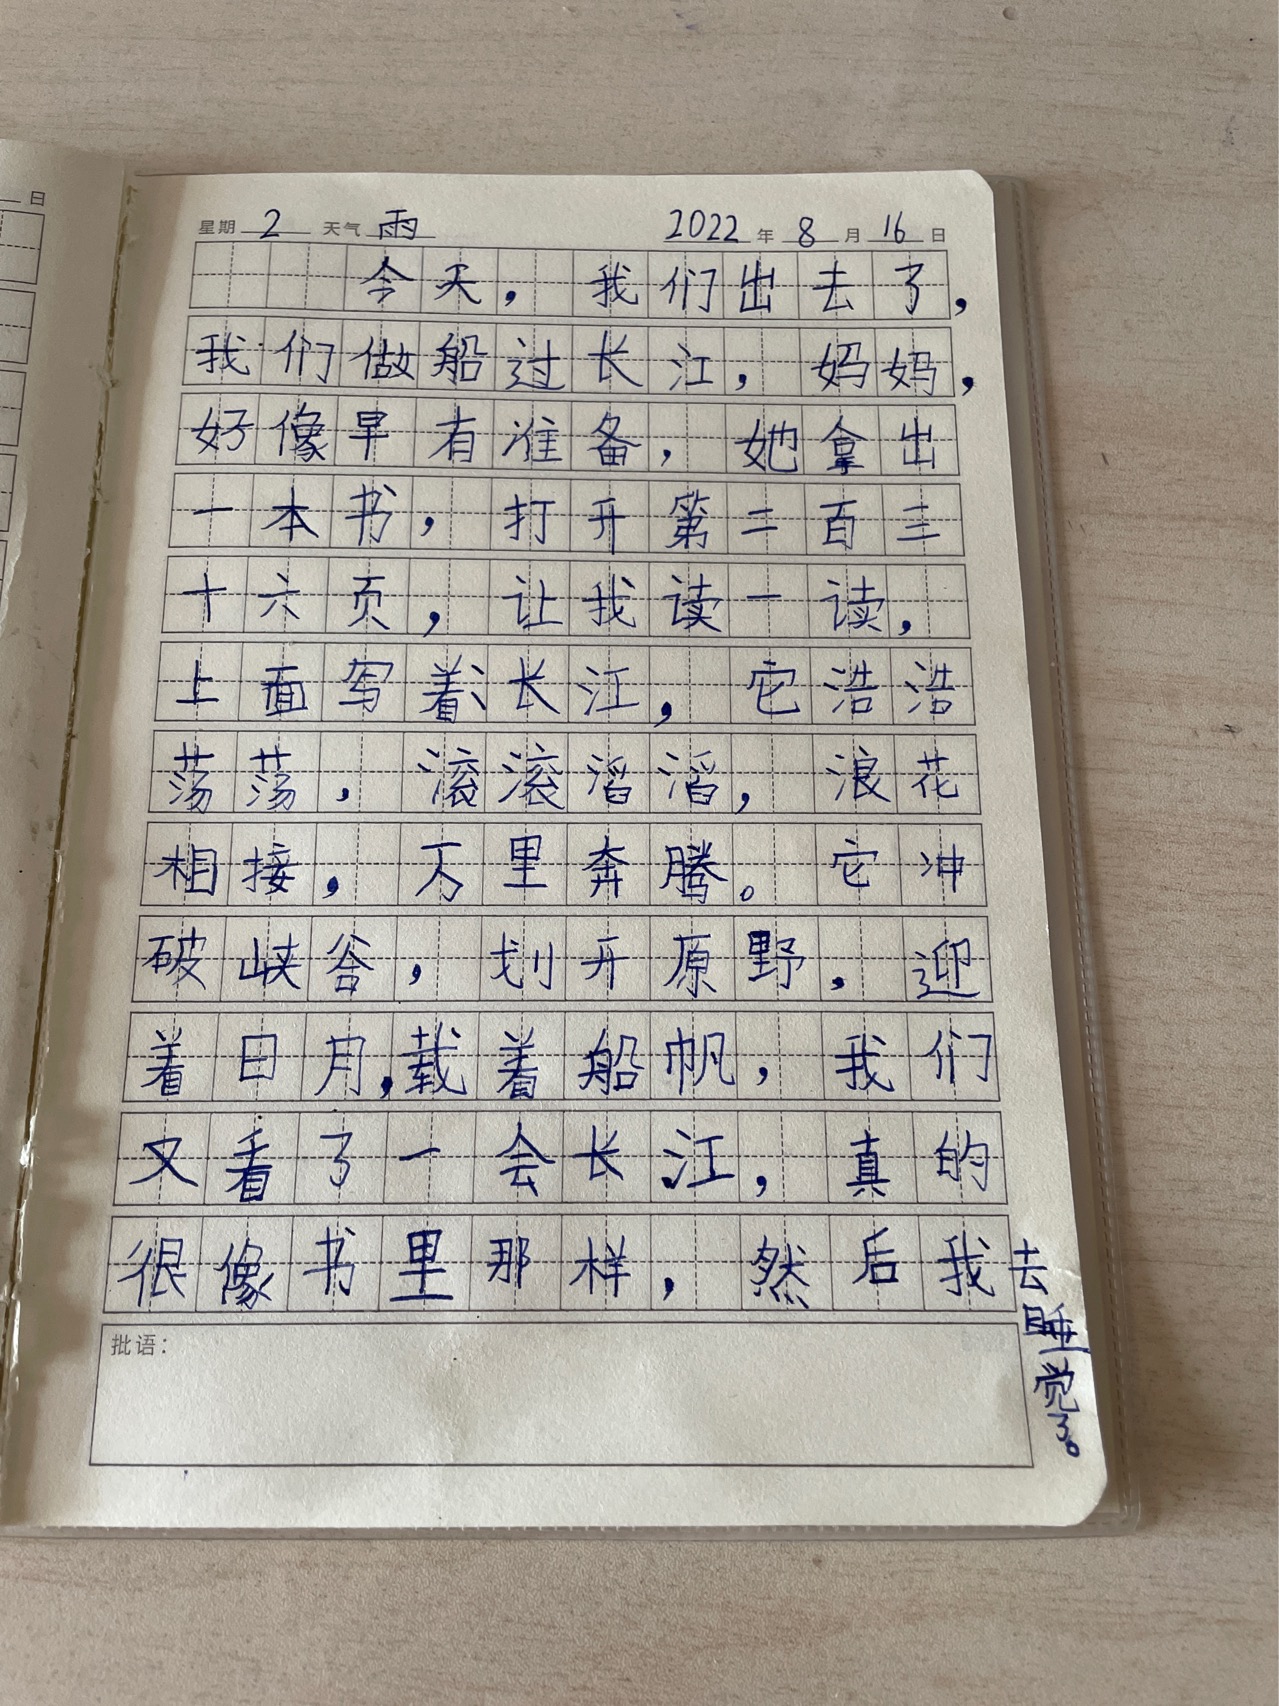 日
星期 2 天气 雨 2022 年 8 月 16 日
今天，我们出去了，
我们做船过长江，妈妈，
好像早有准备，她拿出
一本书，打开第二百三
十六页，让我读一读，
上面写着:长江，它浩浩
荡荡，滚滚滔滔，浪花
相接，万里奔腾。它冲
破峡谷，划开原野，迎
着日月,载着船帆，我们
又看了一会长江，真的
很像书里那样，然后我去
睡
觉
了。
批语：